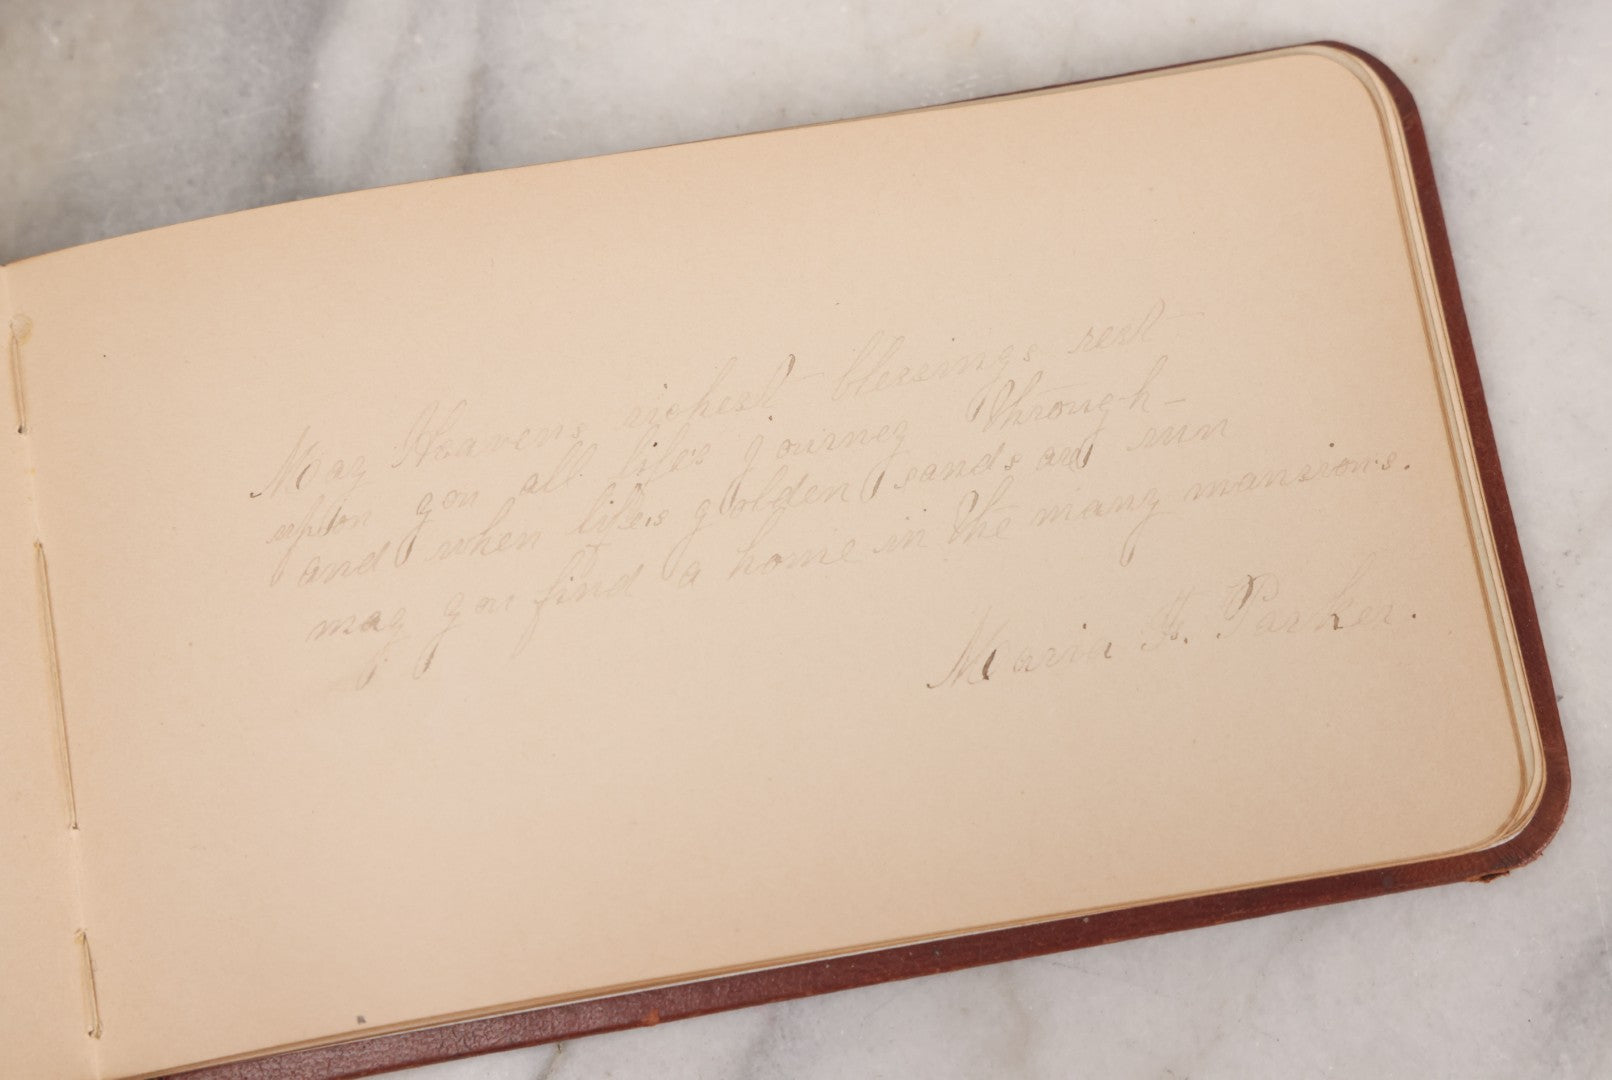 May Heavens richest blessings rest
upon you all life's journey through
and when life's golden sands are run
may you find a home in the many mansions.
Maria F. Parker.